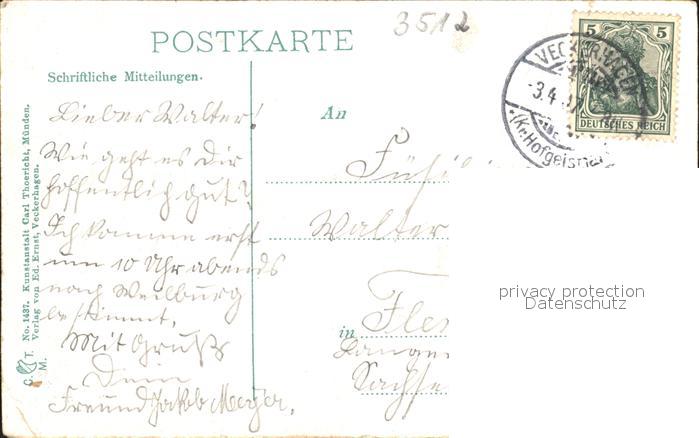 3512
POSTKARTE
Schriftliche Mitteilungen.
An
5 5
DEUTSCHES REICH
VECKERHAGEN
-3.4.
*(Kr. Hofgeismar
Lieber Walter!
Wie geht es Dir
hoffentlich gut?
Ich komme erst
um 10 Uhr abends
nach Weilburg
bestimmt.
Mit Gruß
Dein
Freund Jakob Meyer.
Walter
in
Sachse
No. 1437. Kunstanstalt Carl Thoericht, Münden.
Verlag von Ed. Ernst, Veckerhagen.
C. T.
M.
privacy protection
Datenschutz